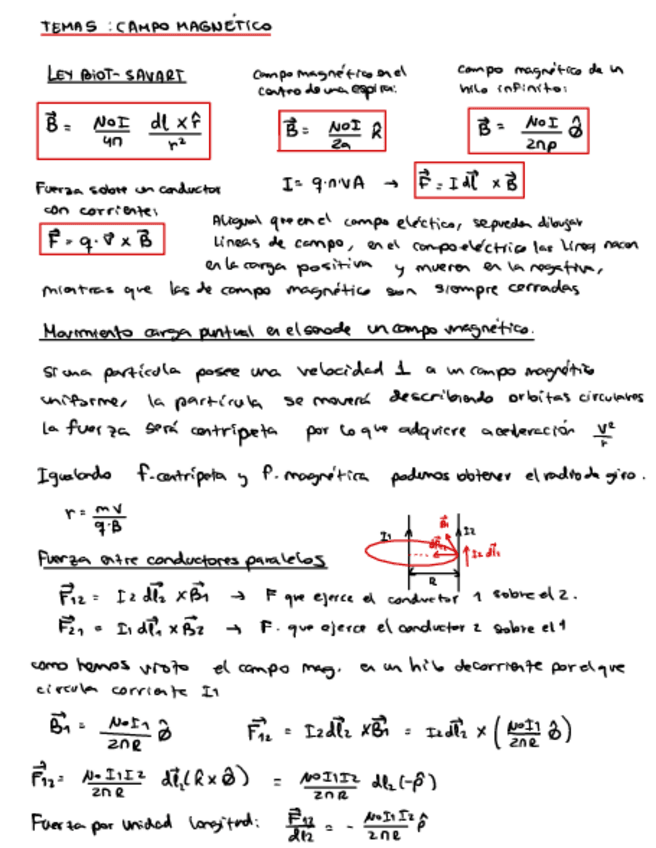 TEMA 5 : CAMPO MAGNÉTICO
LEY BIOT-SAVART
B⃗ = NoI/4π dl × r̂/r²
Campo magnético en el
centro de una espira:
B⃗ = NoI/2a k̂
Campo magnético de un
hilo infinito:
B⃗ = NoI/2πρ Φ̂
Fuerza sobre un conductor
con corriente:
F⃗ = q · v⃗ × B⃗
I = q·n·vA → F⃗ = I dl⃗ × B⃗
Al igual que en el campo eléctrico, se pueden dibujar
lineas de campo, en el campo eléctrico las lineas nacen
en la carga positiva y mueren en la negativa,
mientras que las de campo magnético son siempre cerradas
Movimiento carga puntual en el seno de un campo magnético.
Si una partícula posee una velocidad ⊥ a un campo magnético
uniforme, la partícula se moverá describiendo orbitas circulares
la fuerza será centrípeta por lo que adquiere aceleración v²/r
Igualando f.centrípeta y f. magnética podemos obtener el radio de giro.
r = mv/q·B
I1 B⃗1 I2
dF⃗12 I2 dl⃗2
R
Fuerza entre conductores paralelos
F⃗12 = I2 dl⃗2 × B⃗1 → F que ejerce el conductor 1 sobre el 2.
F⃗21 = I1 dl⃗1 × B⃗2 → F. que ejerce el conductor 2 sobre el 1
como hemos visto el campo mag. en un hilo de corriente por el que
circula corriente I1
B⃗1 = NoI1/2πR Φ̂ F⃗12 = I2 dl⃗2 × B⃗1 = I2 dl⃗2 × (NoI1/2πR Φ̂)
F⃗12 = NoI1I2/2πR dl⃗2 (k̂ × Φ̂) = NoI1I2/2πR dl2 (-ρ̂)
Fuerza por unidad longitud: F⃗12/dl2 = - NoI1I2/2πR ρ̂